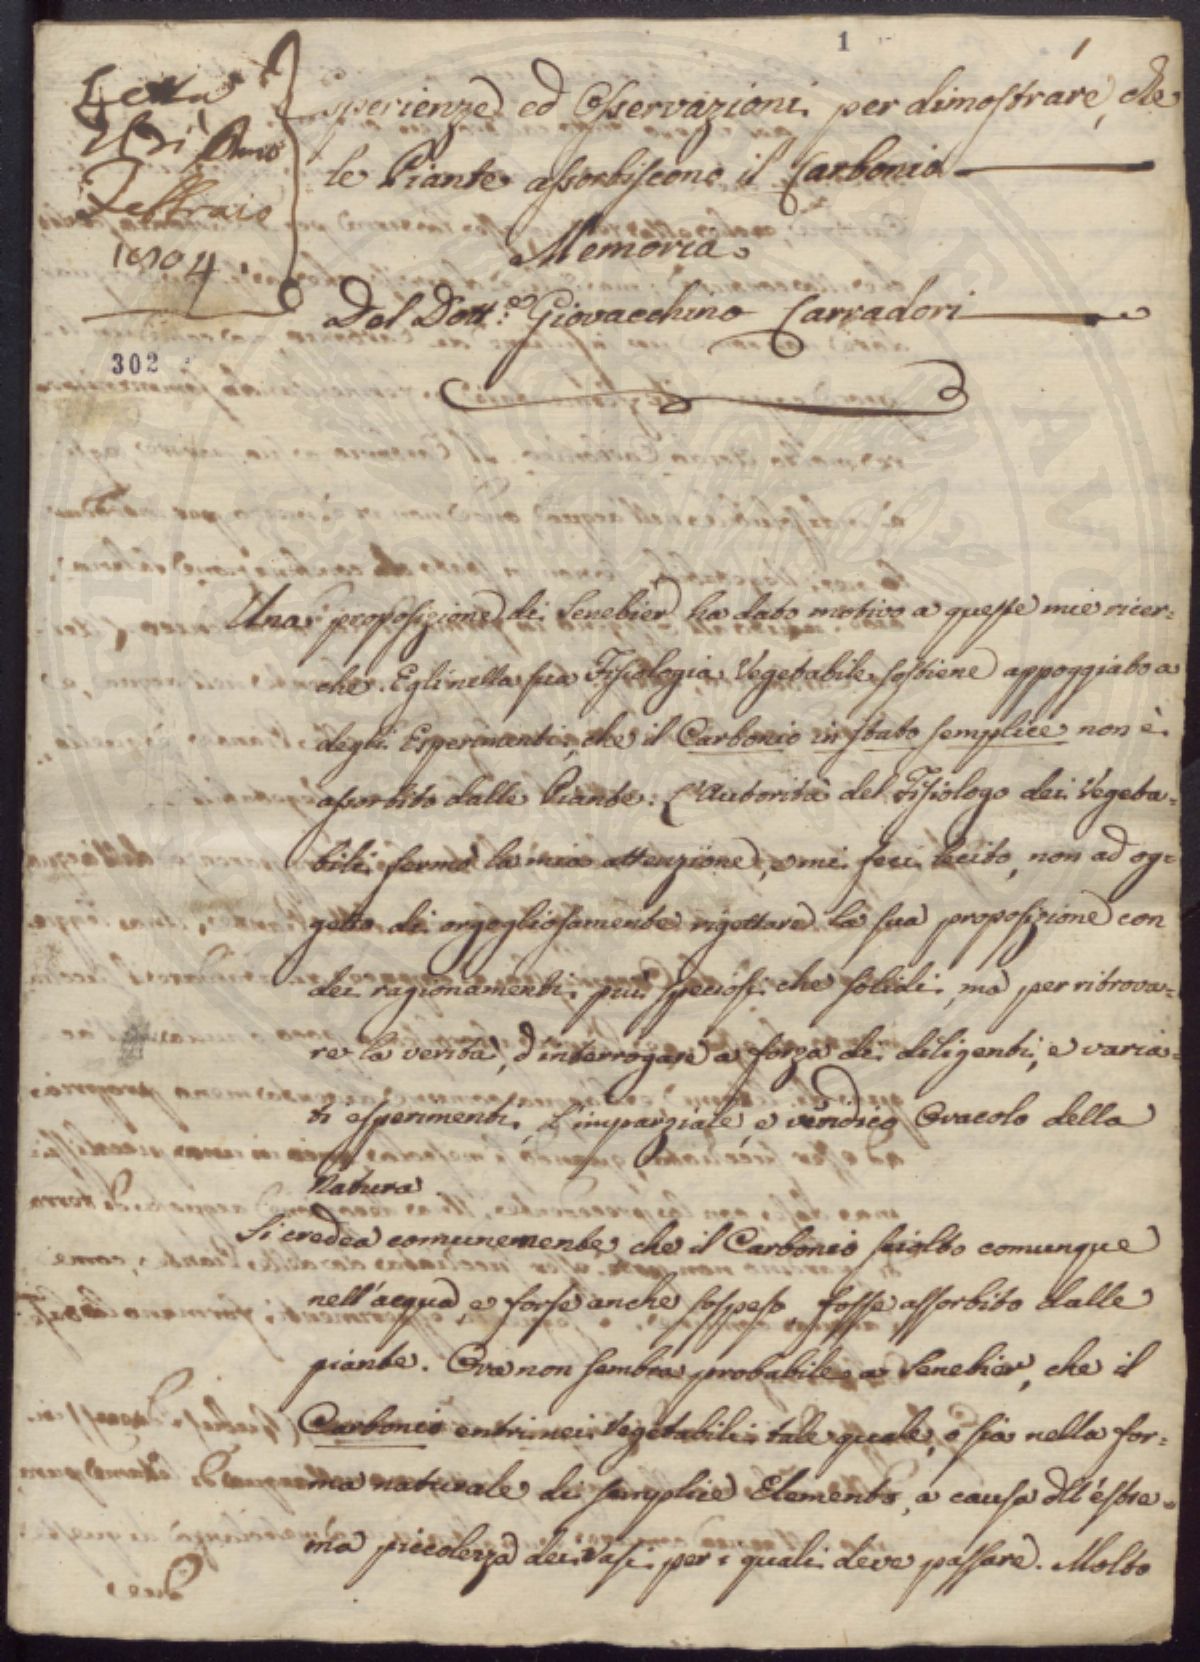 1
1
Letta
Febbraio
1804
302
sperienze ed Osservazioni per dimostrare, che
le Piante assorbiscono il Carbonio
Memoria
Del Dott.re Giovacchino Carradori
Una proposizione di Senebier ha dato motivo a queste mie ricer=
che. Egli nella sua Fisiologia Vegetabile sostiene appoggiato a
degli Esperimenti, che il Carbonio in stato semplice non è
assorbito dalle Piante. L'Autorità del Fisiologo dei Vegeta=
bili fermò la mia attenzione, e mi feci lecito, non ad og=
getto di orgogliosamente rigettare la sua proposizione con
dei ragionamenti più speciosi che solidi, ma per ritrova=
re la verità, d'interrogare a forza di diligenti, e varia=
ti esperimenti, l'imparziale, e veridico Oracolo della
Natura.
Si credea comunemente che il Carbonio sciolto comunque
nell'acqua e forse anche sospeso, fosse assorbito dalle
piante. Ora non sembra probabile a Senebier, che il
Carbonio entri nei Vegetabili tale quale, o sia nella for=
ma naturale di semplice Elemento, a causa dell'estre=
ma piccolezza dei Vasi per i quali deve passare. Molto